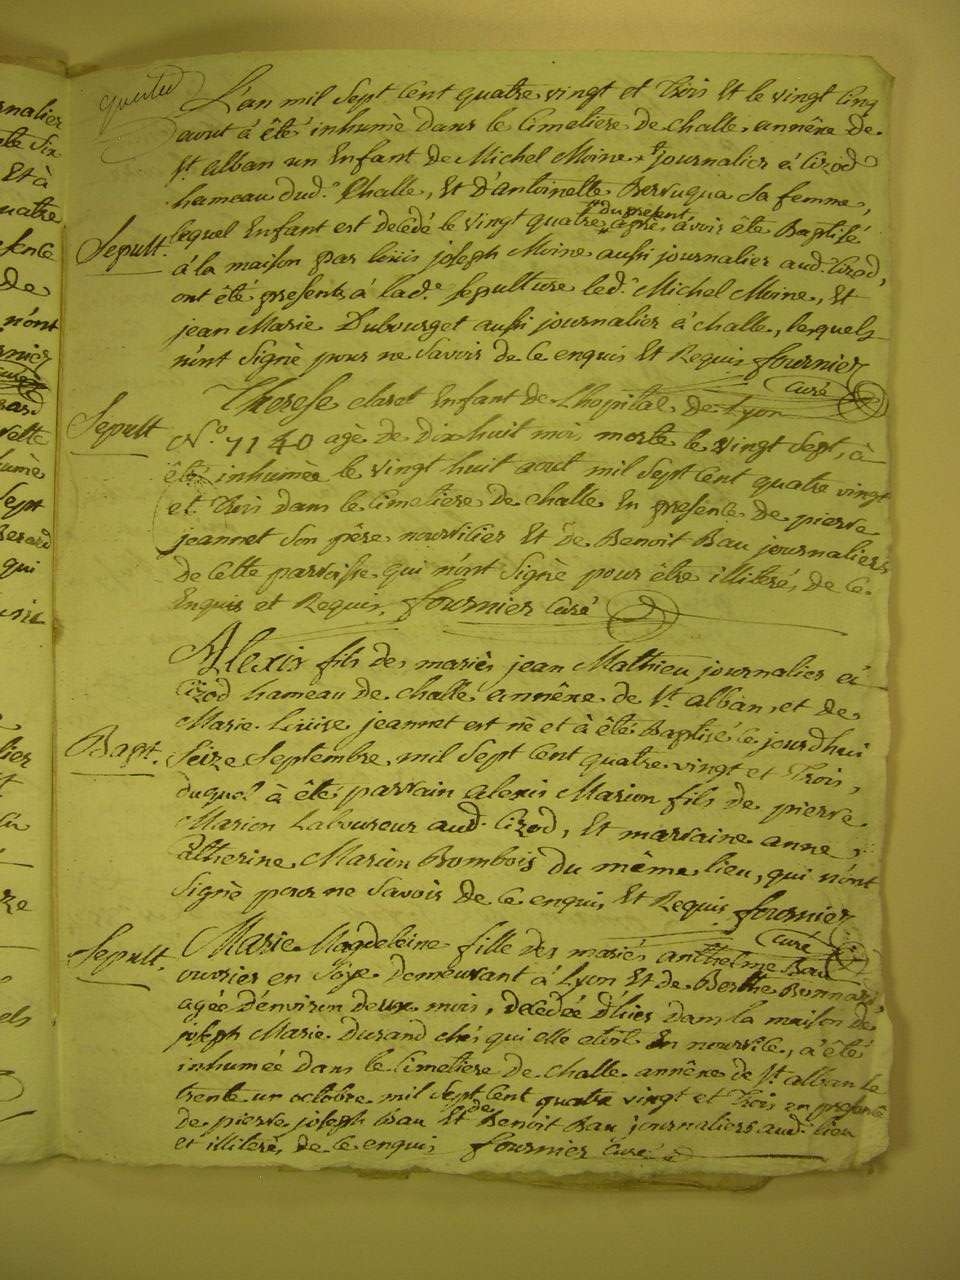 L'an mil Sept Cent quatre vingt et Trois Et le vingt Cinq
aout à été inhumé dans le Cimetiere de challe, annêxe de
St. alban un Enfant de Michel Moine journalier à Cizod
hameau dud. Challe, Et D'antoinette Bervuqua Sa femme,
Sepult.
lequel Enfant est decédé le vingt quatre du présent après avoir été Baptisé
à la maison par Louis joseph Moine aussi journalier aud. Cizod,
ont été presents à lad.e Sepulture led. Michel Moine, Et
jean Marie Dubourget aussi journalier à challe, lesquels
n'ont Signé pour ne Savoir de ce enquis Et Requis fournier
Curé
Sepult
Therese claret Enfant de l'hopital de Lyon
N.o 7140 agé de dix huit mois morte le vingt Sept, à
été inhumée le vingt huit aout mil Sept Cent quatre vingt
et Trois dans le Cimetiere de challe En presence de pierre
jeannet Son père nourricier Et de Benoit Bau journaliers
de Cette parroisse qui n'ont Signé pour être illiteré, de Ce
Enquis et Requis. fournier Curé
Alexis fils des mariés jean Mathieu journalier à
Cizod hameau de challe annêxe de St. alban, et de
Marie Louise jeannet est né et à été Baptisé ce jourdhui
Bapt.
Seize Septembre mil Sept Cent quatre vingt et Trois,
duquel à été parrain alexis Marion fils de pierre
Marion Laboureur aud. Cizod, Et marraine anne
Catherine Marion Bombois du même lieu, qui n'ont
Signé pour ne Savoir de Ce enquis Et Requis fournier
curé
Sepult.
Marie Magdeleine fille des mariés anthelme Bau
ouvrier en Soye demeurant à Lyon Et de Berthe Bonnard,
agée d'environ deux mois, decédée d'hier dans la maison de
joseph Marie Durand chés qui elle etoit En nourrice, à été
inhumée dans le Cimetiere de challe annêxe de St. alban Le
trente un octobre mil Sept Cent quatre vingt et Trois en presence
de pierre joseph Bau Et de Benoit Bau journaliers aud. lieu
et illiteré, de Ce enquis fournier Curé